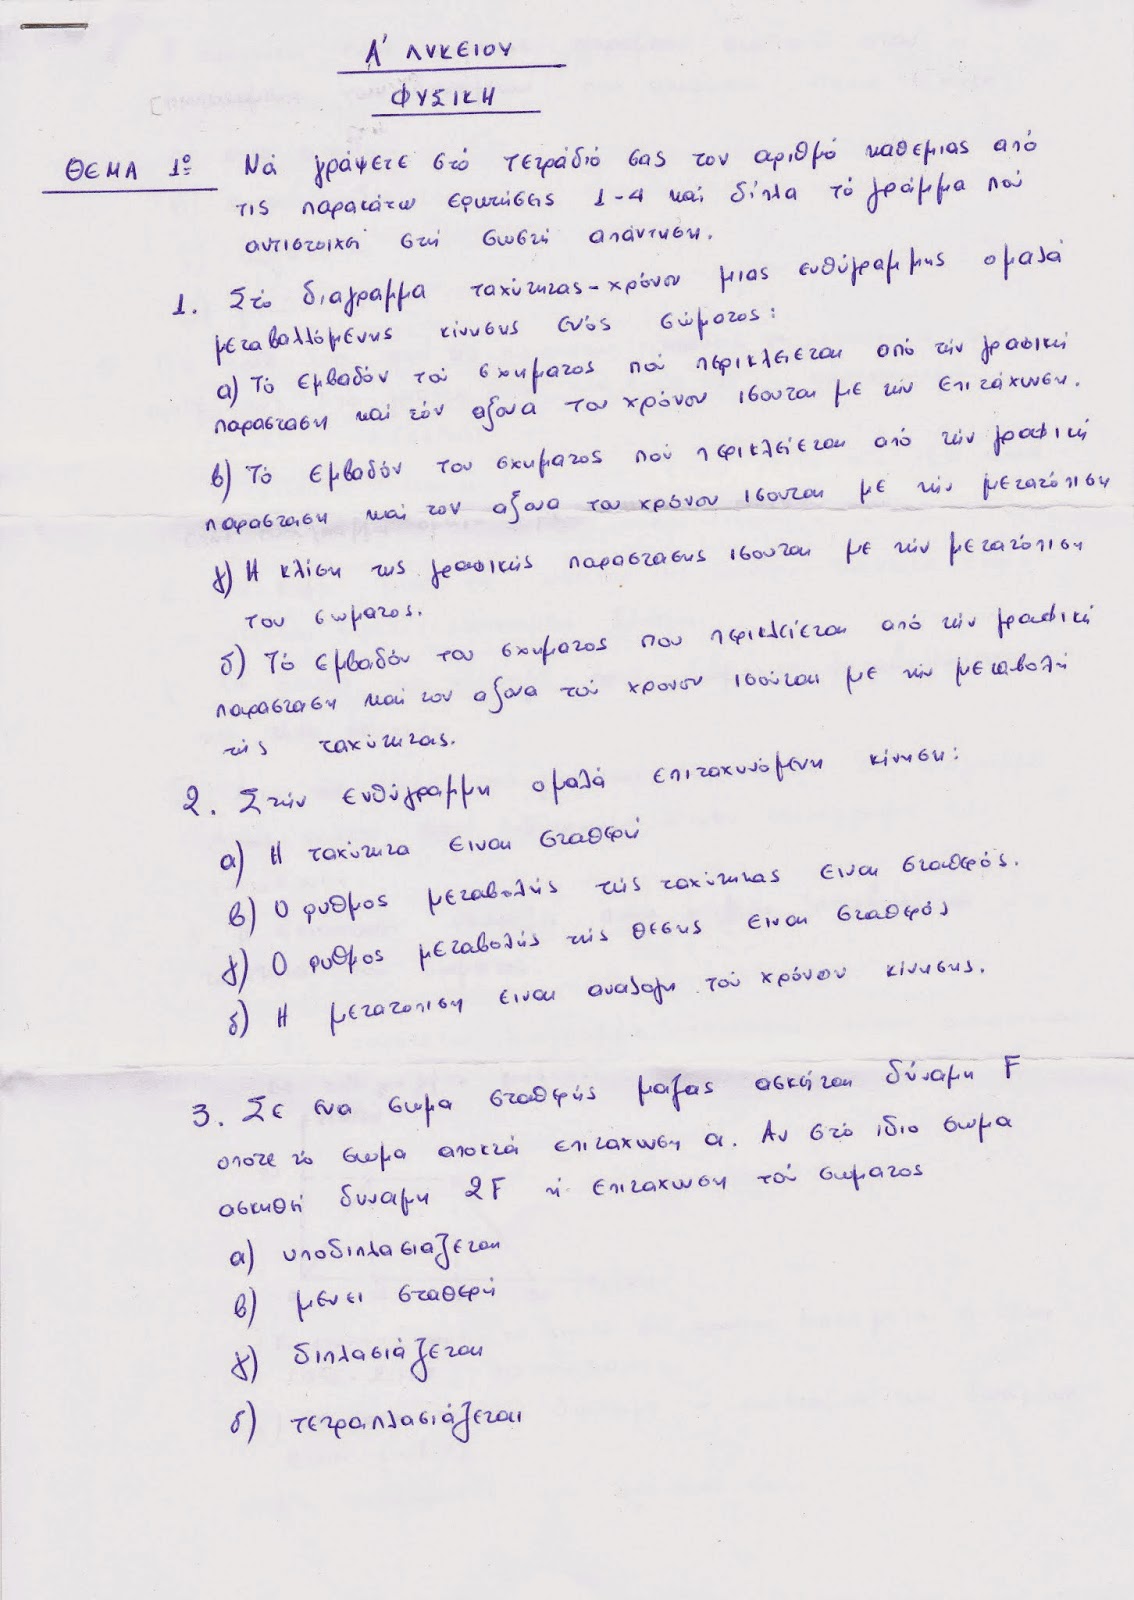 Α' ΛΥΚΕΙΟΥ
ΦΥΣΙΚΗ
ΘΕΜΑ 1º Νά γράψετε στό τετράδιό σας τον αριθμό καθεμιας από
τις παρακάτω ερωτήσεις 1-4 καί δίπλα τό γράμμα πού
αντιστοιχεί στή σωστή απάντηση.
1. Στό διαγραμμα ταχύτητας-χρόνου μιας ευθύγραμμης ομαλά
μεταβαλλόμενης κίνησης ενός σώματος:
α) Τό εμβαδόν τού σχηματος πού περικλείεται από τήν γραφική
παρασταση καί τόν αξονα του χρόνου ισουται με τήν επιτάχυνση.
β) Τό εμβαδόν του σχηματος πού περικλείεται από τήν γραφική
παρασταση καί τον αξονα του χρόνου ισουται με τήν μετατόπιση
γ) Η κλίση της γραφικής παραστασης ισουται με τήν μετατόπιση
του σωματος.
δ) Τό εμβαδόν του σχηματος που περικλείεται από τήν γραφική
παρασταση καί τον αξονα τού χρονου ισούται με τήν μεταβολή
τής ταχύτητας.
2. Στήν ευθύγραμμη ομαλά επιταχυνόμενη κίνηση:
α) Η ταχύτητα ειναι σταθερή
β) Ο ρυθμος μεταβολής τής ταχύτητας ειναι σταθερός.
γ) Ο ρυθμος μεταβολής τής θεσης ειναι σταθερός
δ) Η μετατοπιση ειναι αναλογη τού χρόνου κίνησης.
3. Σε ενα σωμα σταθερής μαζας ασκείται δύναμη F
οποτε τό σωμα αποκτά επιταχυνση α. Αν στό ιδιο σωμα
ασκηθεί δυναμη 2F ή επιταχυνση τού σωματος
α) υποδιπλασιαζεται
β) μενει σταθερή
γ) διπλασιάζεται
δ) τετραπλασιάζεται